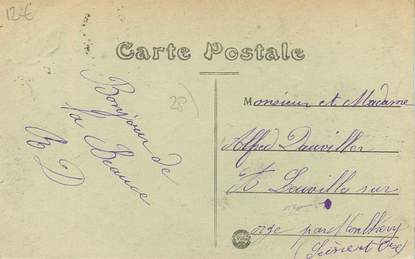 12€
Carte Postale
28
Bonjour de
la Beauce
Monsieur et Madame
Alfred Dauvillier
à Leuville sur
orge par Montlhéry
(Seine et Oise)